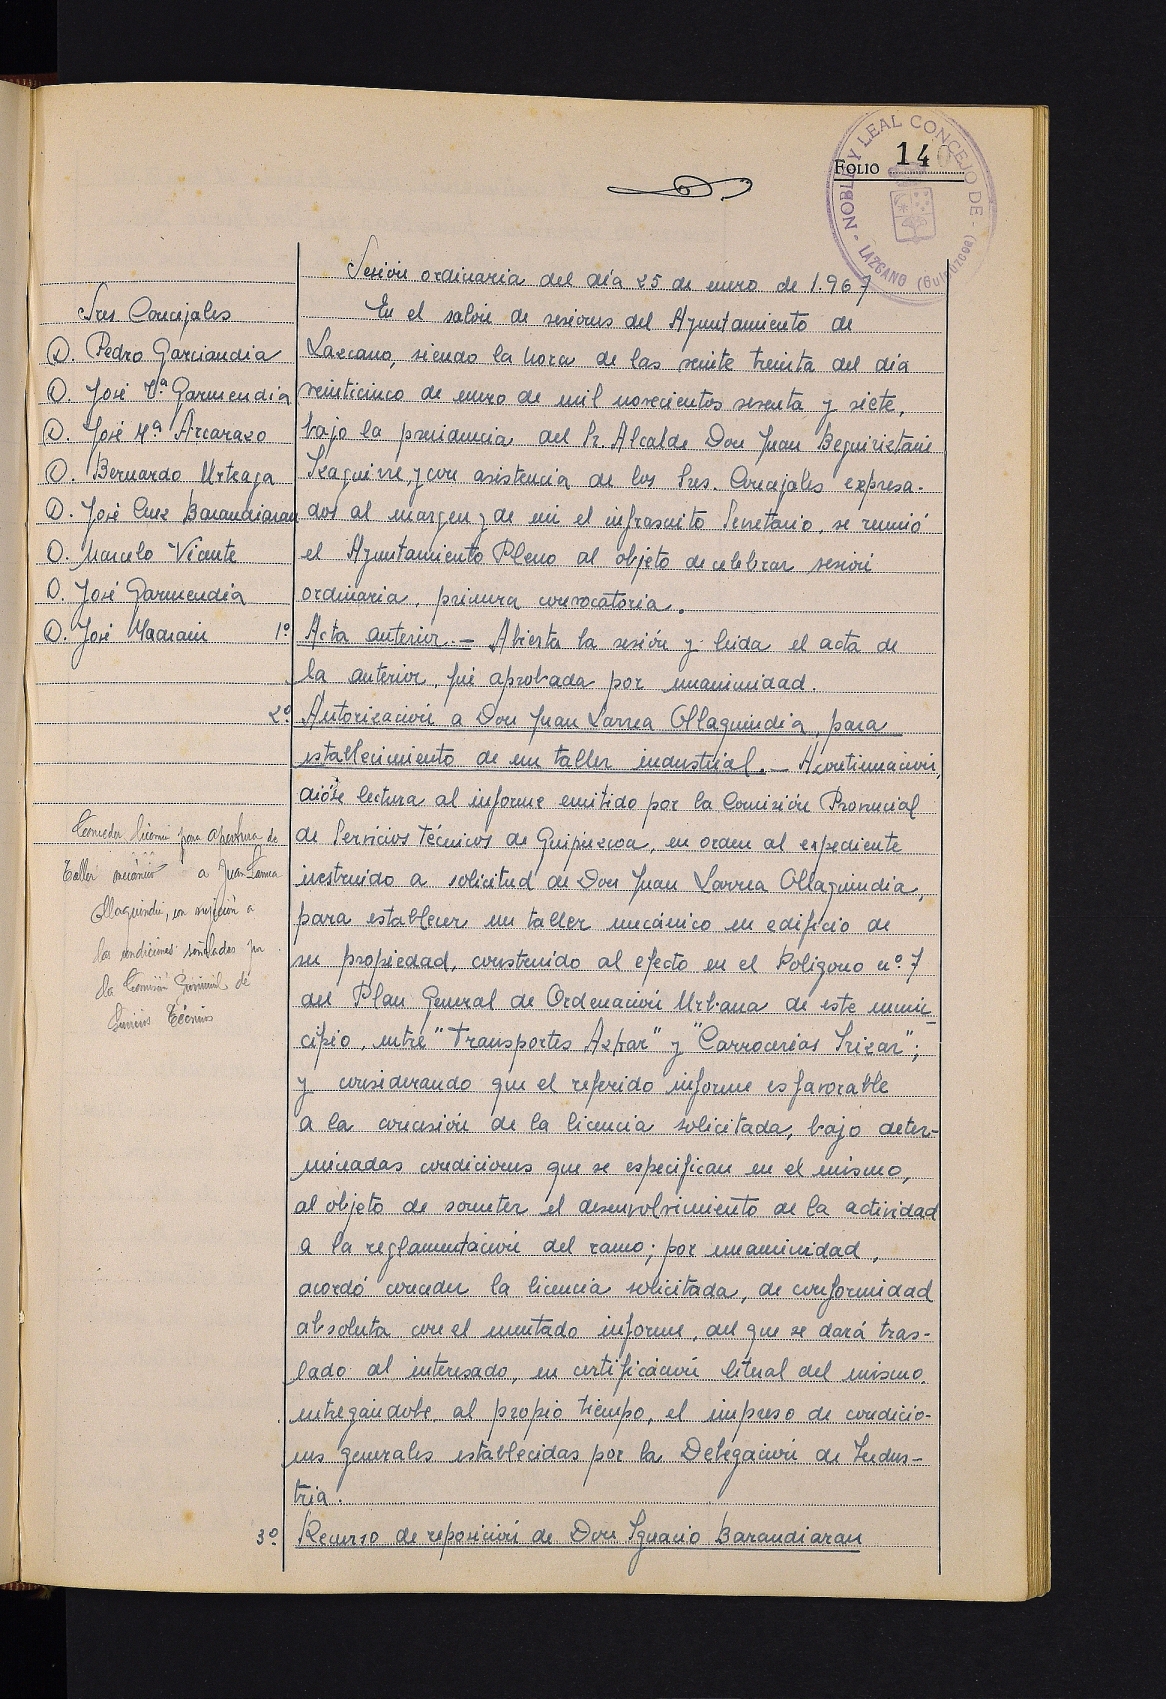 NOBLE Y LEAL CONCEJO DE - LAZCANO (Guipuzcoa) -
FOLIO 140
Sesión ordinaria del día 25 de enero de 1.967
Sres Concejales
D. Pedro Garciandia
D. José Mª Garmendia
D. José Mª Arcarazo
D. Bernardo Urteaga
D. José Cruz Barandiaran
D. Marcelo Vicente
D. José Garmendia
D. José
En el salón de sesiones del Ayuntamiento de
Lazcano, siendo la hora de las veinte treinta del día
veinticinco de enero de mil novecientos sesenta y siete,
bajo la presidencia del Sr. Alcalde Don Juan Beguiristain
Izaguirre, y con asistencia de los Sres. Concejales expresa-
dos al margen y de mi el infrascrito Secretario, se reunió
el Ayuntamiento Pleno al objeto de celebrar sesión
ordinaria, primera convocatoria.
1º Acta anterior. — Abierta la sesión y leida el acta de
la anterior, fué aprobada por unanimidad.
2º Autorización a Don Juan Larrea Ollaquindia, para
establecimiento de un taller industrial. — A continuación,
dióse lectura al informe emitido por la Comisión Provincial
de Servicios Técnicos de Guipúzcoa, en orden al expediente
instruido a solicitud de Don Juan Larrea Ollaquindia,
para establecer un taller mecánico en edificio de
su propiedad, construido al efecto en el Poligono nº 7
del Plan General de Ordenación Urbana de este muni-
cipio, entre "Transportes Azkar" y "Carrocerias Irizar";
y considerando que el referido informe es favorable
a la concesión de la licencia solicitada, bajo deter-
minadas condiciones que se especifican en el mismo,
al objeto de someter el desenvolvimiento de la actividad
a la reglamentación del ramo; por unanimidad,
acordó conceder la licencia solicitada, de conformidad
absoluta con el mentado informe, del que se dará tras-
lado al interesado, en certificación literal del mismo,
entregandole al propio tiempo, el impreso de condicio-
nes generales establecidas por la Delegación de Indus-
tria.
Conceder licencia para apertura de
Taller mecánico a Juan Larrea
Ollaquindia, con sujeción a
las condiciones señaladas por
la Comisión Provincial de
Servicios Técnicos
3º Recurso de reposición de Don Ignacio Barandiaran